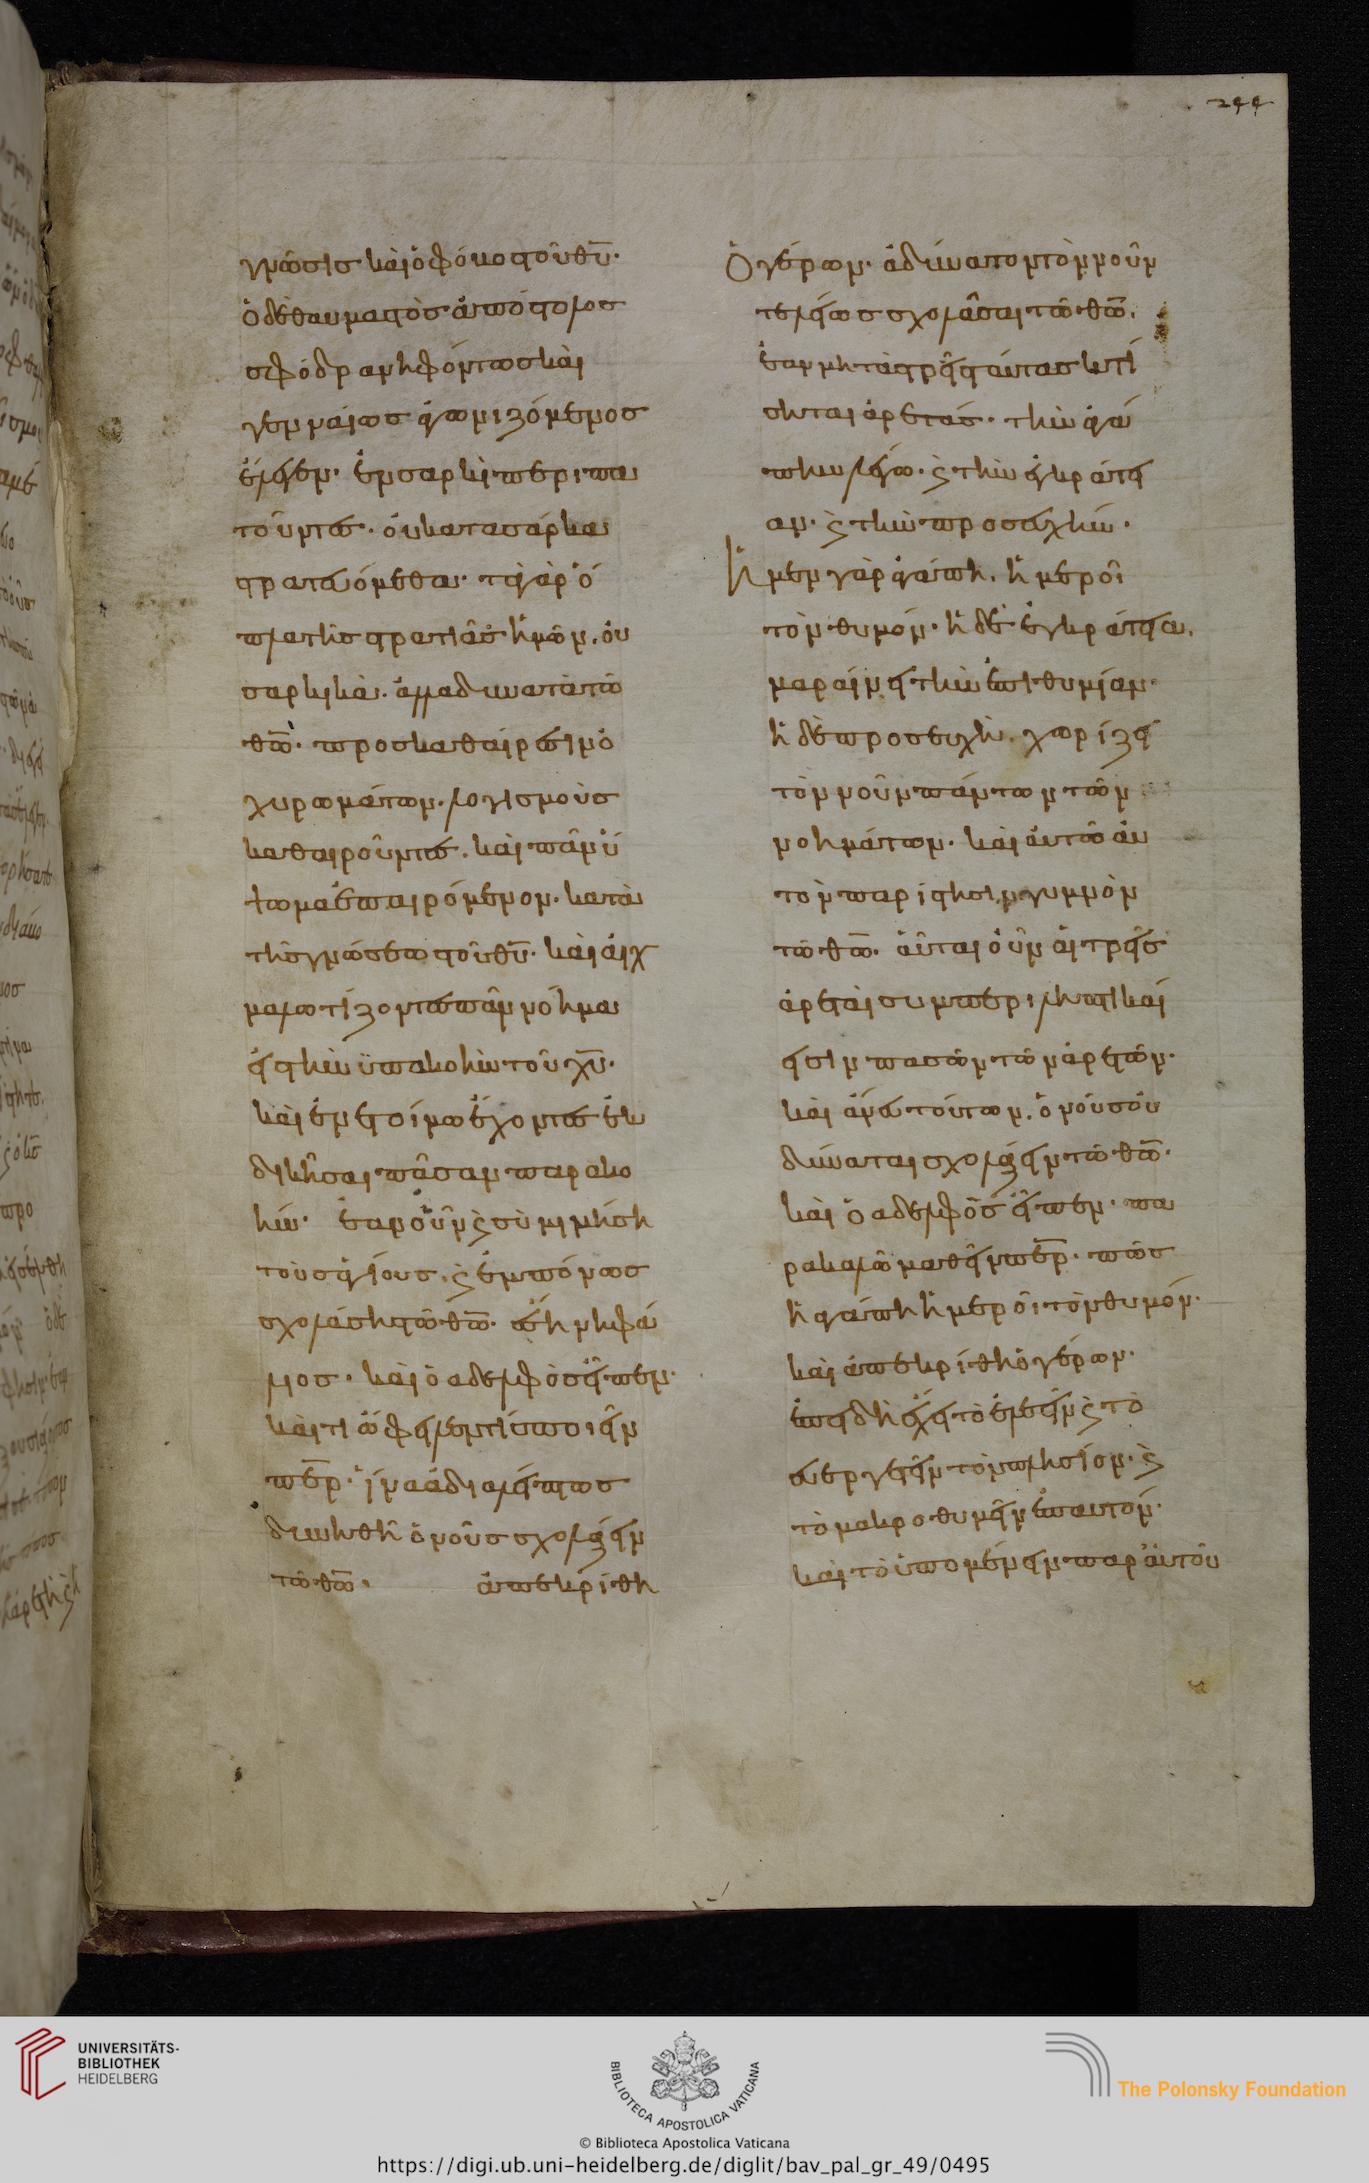 244
γνῶσισ καὶ ὁ φόβος τοῦ θῦ.
ὁ δὲ θαυμαστὸσ ἀπόστολοσ
σφόδρα νηφόντωσ καὶ
γενναίωσ ἀγωνιζόμενοσ
ἔλεγεν. ἐν σαρκὶ περιπα
τοῦντες. οὐ κατα σάρκα
στρατευόμεθα. τὰ γὰρ ὅ
πλα τῆσ στρατιᾶς ἡμῶν. οὐ
σαρκικὰ. ἀλλα δυνατὰ τῶ
θῶ. προσ καθαίρεσιν ὀ
χυρωμάτων. λογισμοὺσ
καθαιροῦντες. καὶ πᾶν ὕ
ψωμα ἐπαιρόμενον. κατὰ
τῆσ γνώσεωσ τοῦ θῦ. καὶ αἰχ
μαλωτίζοντες πᾶν νόημα
εἰσ τὴν ὑπακοὴν τοῦ χῦ.
καὶ ἐν ἑτοίμω ἔχοντες ἐκ
δικῆσαι πᾶσαν παρακο
ήν. ἐαν οὖν ϛ σὺ μιμήση
τοὺσ ἁγίουσ. ϛ ἐμπόνωσ
σχολάσησ τῶ θῶ.
μοσ. καὶ ὁ αδελφὸσ εἶπεν.
καὶ τι ὤφειλέν τίσ ποιεῖν
περ. ἵνα ἀδιαλείπτωσ
δυνηθῆ ὁ νοῦσ σχολάζειν
τῶ θῶ. ἀπεκρίθη
Ὁ γέρων. ἀδύνατον τὸν νοῦν
τελείωσ σχολᾶσαι τῶ θῶ.
ἐαν μὴ τὰσ τρεῖσ ταύτασ κτή
σηται ἀρετάς. τὴν ἀγά
πην λέγω. ϛ τὴν ἐγκράτει
αν. ϛ τὴν προσευχήν.
Ἡ μεν γὰρ ἀγάπη. ἡμεροῖ
τὸν θυμόν. ἡ δὲ ἐγκράτεια.
μαραίνει τὴν ἐπιθυμίαν.
ἡ δὲ προσευχὴ. χωρίζει
τὸν νοῦν πάντων τῶν
νοημάτων. καὶ αὐτῶ αὐ
τὸν παρίστησιν γυμνὸν
τῶ θῶ. αὗται οὖν αἱ τρεῖσ
ἀρεταὶ συμπεριληπτικαί
εἰσιν πασῶν τῶν ἀρετῶν.
καὶ ἄνευ τούτων. ὁ νοῦσ οὐ
δύναται σχολάζειν τῶ θῶ.
καὶ ὁ αδελφὸσ εἶπεν. πα
ρακαλῶ μαθεῖν περ. πῶσ
ἡ ἀγάπη ἡμεροῖ τὸν θυμόν.
καὶ ἀπεκρίθη ὁ γέρων.
ἐπειδὴ ἔχει τὸ ἐλεεῖν ϛ τὸ
εὐεργετεῖν τὸν πλησίον. ϛ
τὸ μακροθυμεῖν ἐπ αυτόν.
καὶ τὸ ὑπομένειν παρ' αὐτοῦ
UNIVERSITÄTS-
BIBLIOTHEK
HEIDELBERG
BIBLIOTECA APOSTOLICA VATICANA
The Polonsky Foundation
© Biblioteca Apostolica Vaticana
https://digi.ub.uni-heidelberg.de/diglit/bav_pal_gr_49/0495